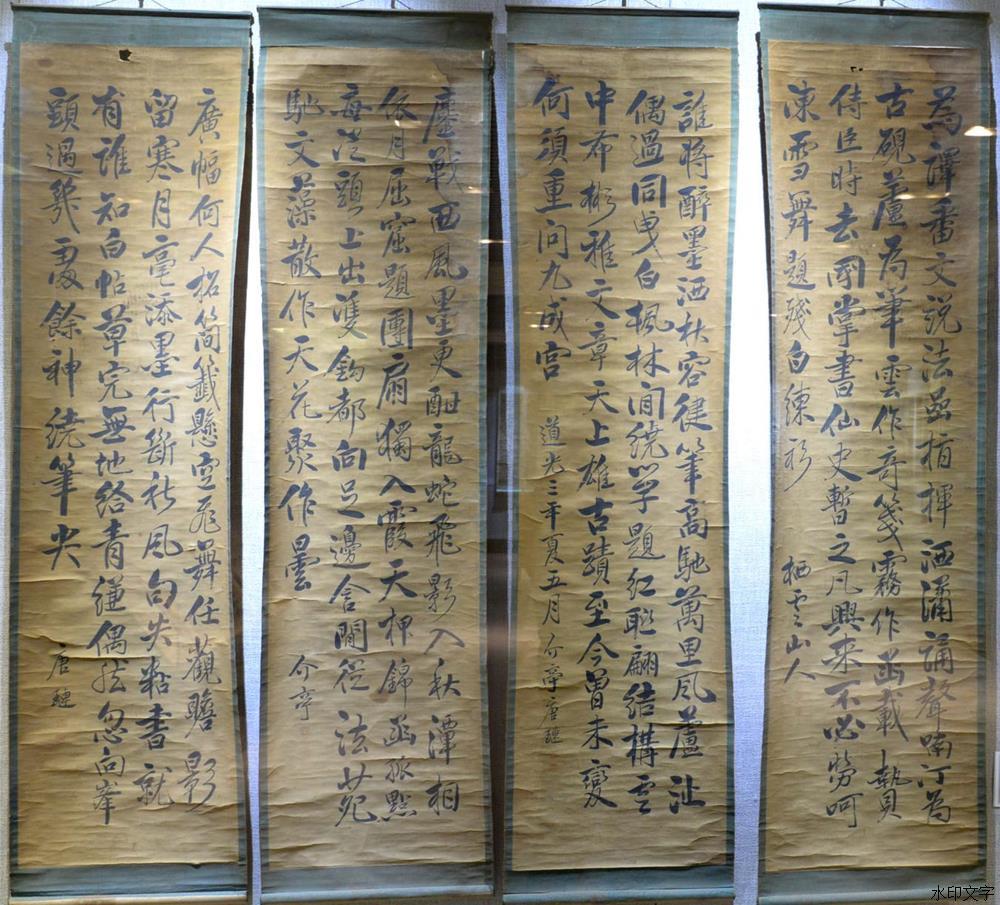 為譯番文説法函楷揮洒瀟誦聲喃汀為
古硯蘆為筆雲作奇箋霧作函載贄
侍臣時去國掌書仙史暫之凡興來不必勞呵
凍雪舞題殘白練衫
栖雲山人
誰將醉墨洒秋容健筆高馳萬里風蘆沚
偶過同曳白楓林閒繞學題紅聯翩結構雲
中布彬雅文章天上雄古蹟至今曾未變
何須重問九成宮
道光三年夏五月介亭唐璉
鏖戰西風墨更酣龍蛇飛影入秋潭相
依月屈窟題團扇獨入霞天押錦函孤點
每從頭上出雙鈎都向足邊含閒從法苑
馳文藻散作天花聚作曇
介亭
廣幅何人招簡籤懸空飛舞任觀瞻影
留寒月毫添墨行斷秋風句失粘書就
有誰知白帖草完無地給青縑偶然忽向峯
頭過幾處餘神繞筆尖
唐璉
水印文字